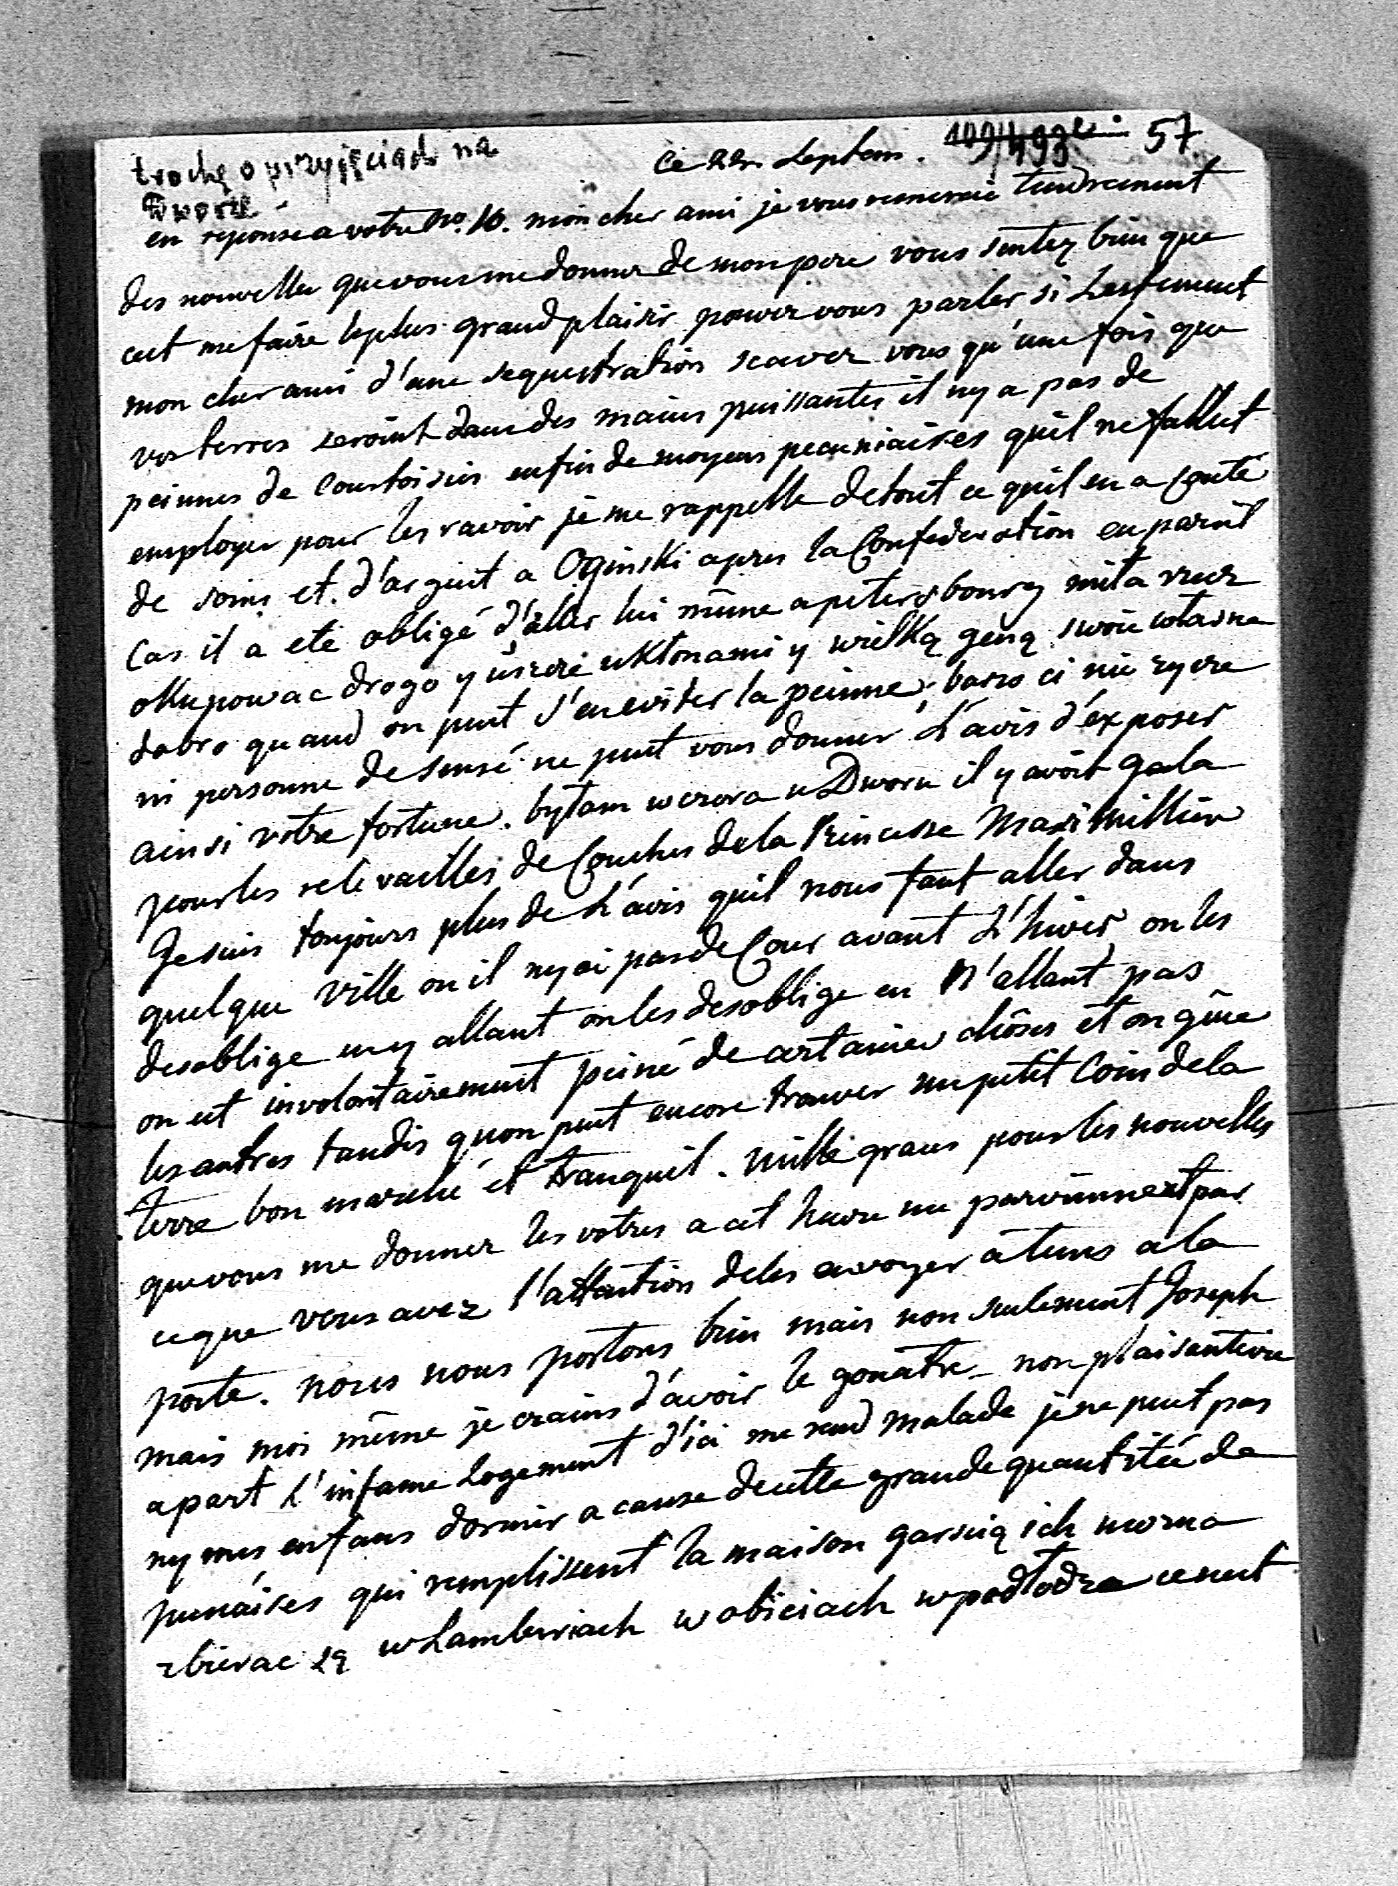 trochę o przyjęciach na
Dworze.
ce 22 Septem. 57
en reponse a votre No. 10. mon cher ami je vous remercie tendrement
des nouvelles que vous me donner de mon pere vous sentez bien que
cest me faire le plus grand plaisir pouvez vous parler si Lestement
mon cher ami d'une sequestration scavez vous qu'une fois que
vos terres seroint dans des mains puissantes il ny a pas de
peinnes de courtoisies enfin de moyens pecuniaires quil ne fallut
employer pour les ravoir je me rappelle de tout ce quil en a couté
de soins et d'argent a Oginski apres la Confederation en pareil
Cas il a eté obligé d'aller lui même a petersbourg
okupowac drogo y ukłonami y wielką ceną swoie własne
dobro quand on peut s'en eviter la peinne
ni personne de sensé ne peut vous donner L'avis d'exposer
ainsi votre fortune. byłam wczora u Dworu il y avoit gala
pour les relevailles de Couches de la Princesse Maximillien
Je suis toujours plus de L'avis quil nous faut aller dans
quelque ville ou il ny ai pas de Cour avant L'hiver on les
desoblige en y allant on les desoblige en N'allant pas
on est involontairement peiné de certaines choses et on gêne
les autres tandis quon peut encore trouver un petit Coin de la
terre bon marché et tranquil. mille graces pour les nouvelles
que vous me donner les votres a cet heure me parviennent par
ce que vous avez l'attention de les envoyer a tems a la
poste. nous nous portons bien mais non seulement Joseph
mais moi même je crains d'avoir le gouatre non plaisanterie
apart L'infame Logement d'ici me rend malade je ne peut pas
ny mes enfans dormir a cause de cette grande quantitée de
punaises qui remplissent la maison garscią ich mozna
zbierac są w Lamberiach w obiciach w podłodze ce nest